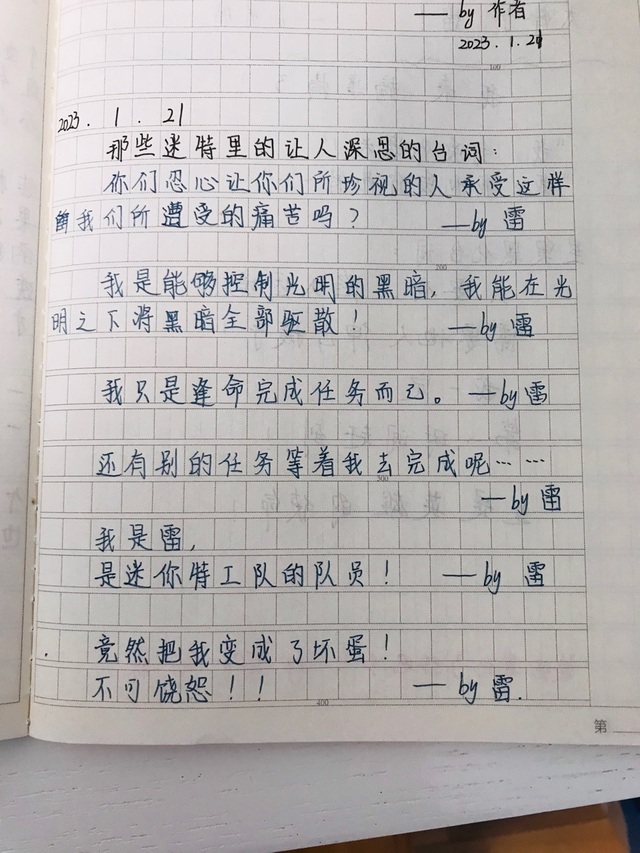 — by 作者
2023.1.21
100
2023.1.21
那些迷特里的让人深思的台词：
你们忍心让你们所珍视的人承受这样
我们所遭受的痛苦吗？ —by 雷
200
我是能够控制光明的黑暗，我能在光
明之下将黑暗全部驱散！ —by 雷
我只是逢命完成任务而已。—by 雷
还有别的任务等着我去完成呢……
300
—by 雷
我是雷，
是迷你特工队的队员！ —by 雷
竟然把我变成了坏蛋！
不可饶恕！！ —by 雷.
400
第